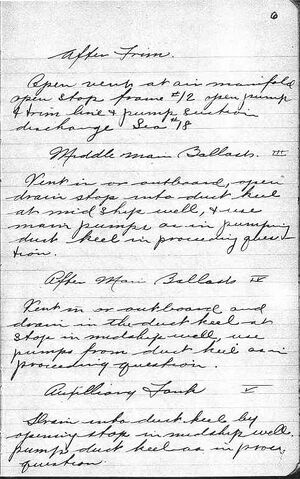 6
After Trim.
Open vent at air manifold
open stop frame #12 open pump
& trim line & pump suction
discharge Sea #18
Middle Main Ballads. III
Vent in or outboard, open
drain stop into duct keel
at mid'ship well, & use
main pumps as in pumping
duct keel in proceeding ques-
tion.
After Main Ballads IV
Vent in or outboard and
drain in the duct keel at
stop in midship well, use
pumps from duct keel as in
proceeding question.
Auxilliary Tank V
Drain into duct keel by
opening stop in midship well.
pump duct keel as in proce,
question